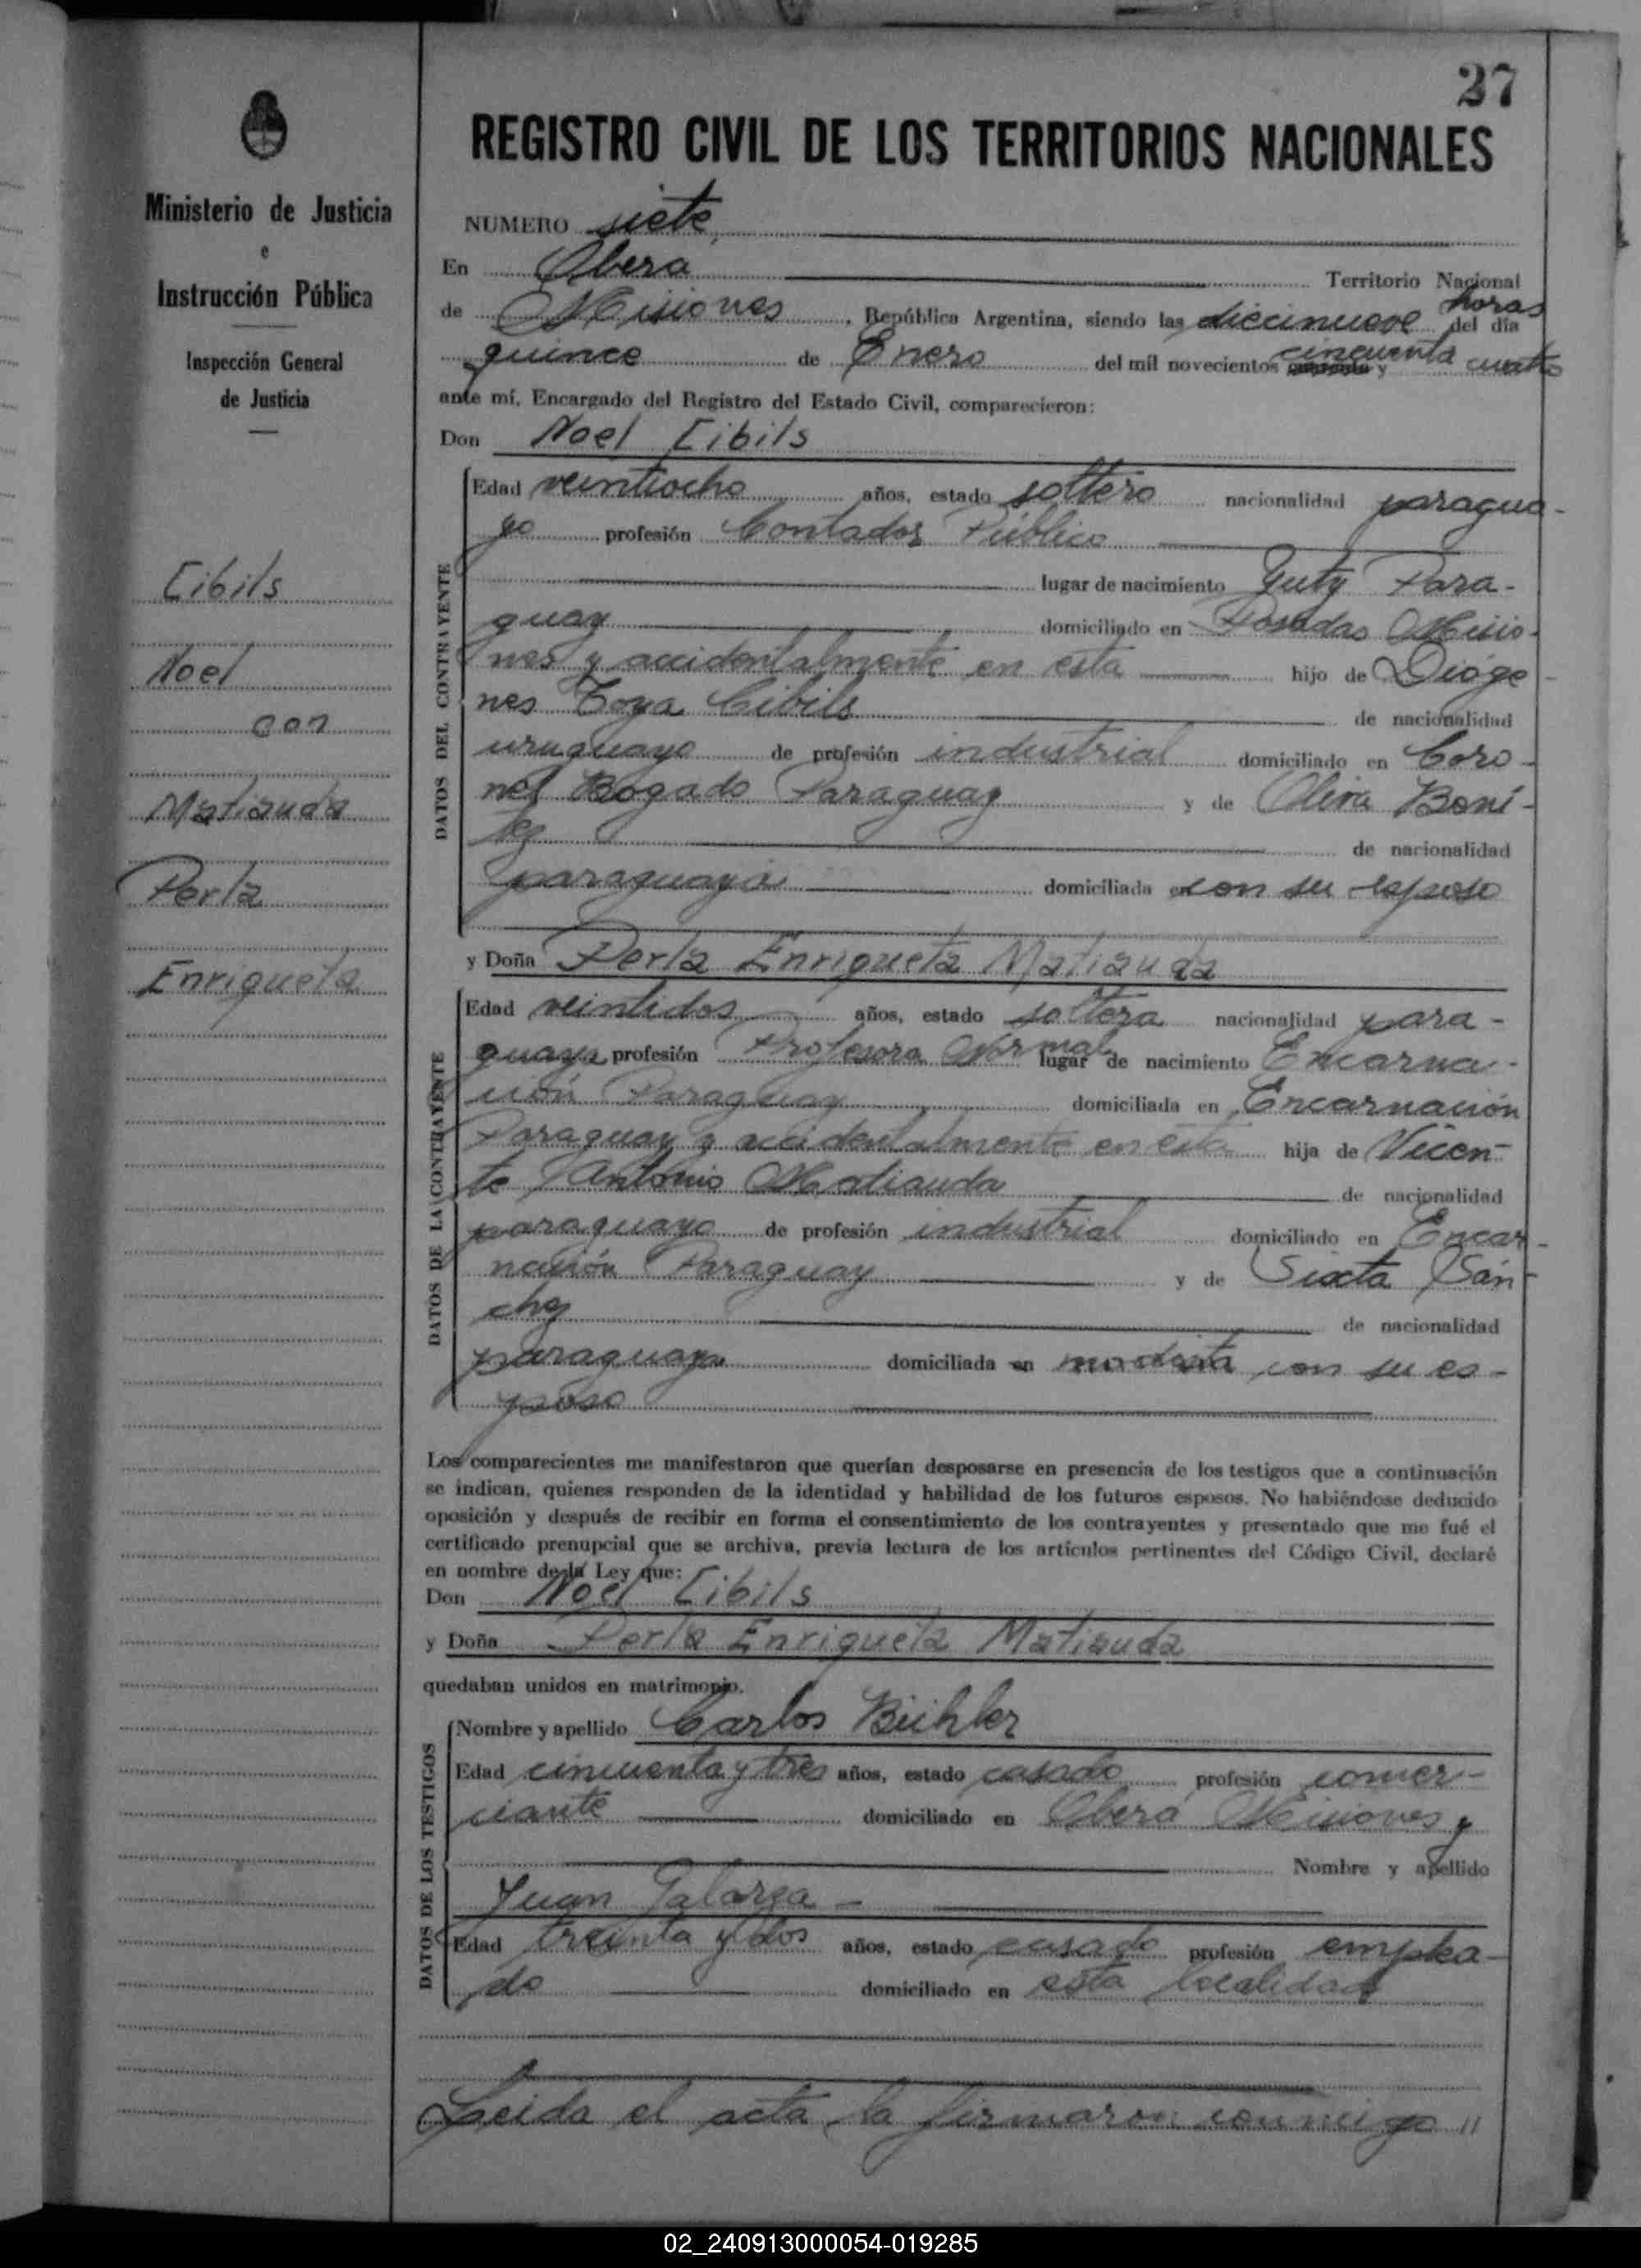 27
Ministerio de Justicia
e
Instrucción Pública
Inspección General
de Justicia
Cibils
Noel
con
Matiauda
Perla
Enriqueta
REGISTRO CIVIL DE LOS TERRITORIOS NACIONALES
NUMERO siete
En Obera Territorio Nacional
de Misiones, República Argentina, siendo las diecinueve horas del día
quince de Enero del mil novecientos cincuenta y cuatro
ante mí, Encargado del Registro del Estado Civil, comparecieron:
Don Noel Cibils
DATOS DEL CONTRAYENTE
Edad veintiocho años, estado soltero nacionalidad paragua-
yo profesión Contador Público
lugar de nacimiento Yuty Para-
guay domiciliado en Posadas Misio-
nes y accidentalmente en esta hijo de Dióge
nes Coya Cibils de nacionalidad
uruguayo de profesión industrial domiciliado en Coro-
nel Bogado Paraguay y de Oliva Boni-
tez de nacionalidad
paraguaya domiciliada en con su esposo
y Doña Perla Enriqueta Matiauda
DATOS DE LA CONTRAYENTE
Edad veintidos años, estado soltera nacionalidad para-
guaya profesión Profesora Normal lugar de nacimiento Encarna-
ción Paraguay domiciliada en Encarnación
Paraguay y accidentalmente en esta hija de Vicen-
te Antonio Matiauda de nacionalidad
paraguayo de profesión industrial domiciliado en Encar-
nación Paraguay y de Sixta Sán-
chez de nacionalidad
paraguaya domiciliada en modista con su es-
poso
Los comparecientes me manifestaron que querían desposarse en presencia de los testigos que a continuación
se indican, quienes responden de la identidad y habilidad de los futuros esposos. No habiéndose deducido
oposición y después de recibir en forma el consentimiento de los contrayentes y presentado que me fué el
certificado prenupcial que se archiva, previa lectura de los artículos pertinentes del Código Civil, declaré
en nombre de la Ley que:
Don Noel Cibils
y Doña Perla Enriqueta Matiauda
quedaban unidos en matrimonio.
DATOS DE LOS TESTIGOS
Nombre y apellido Carlos Bühler
Edad cincuenta y tres años, estado casado profesión comer-
ciante domiciliado en Oberá Misiones y
Nombre y apellido
Juan Galarza
Edad treinta y dos años, estado casado profesión emplea-
do domiciliado en esta localidad
Leida el acta la firmaron conmigo "
02_240913000054-019285